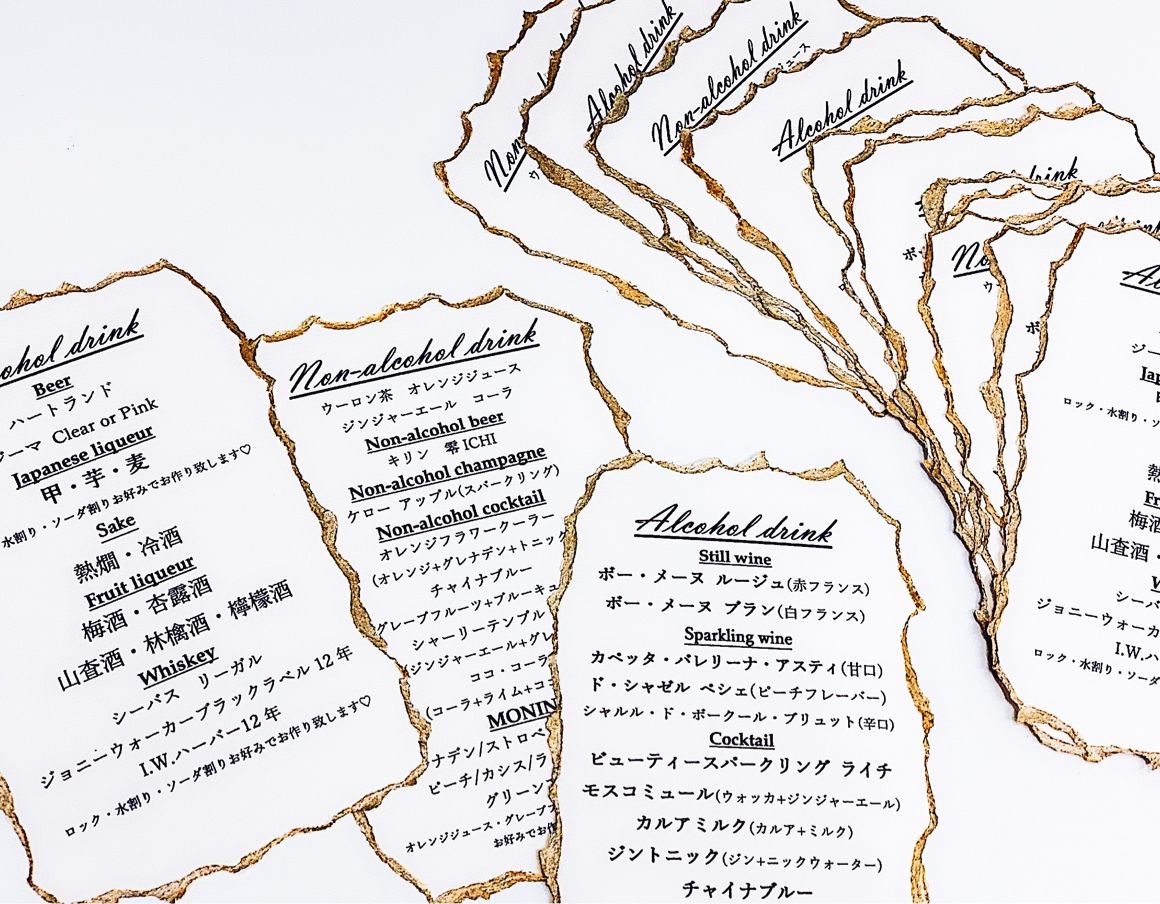 Alcohol drink
Non-alcohol drink
Alcohol drink
drink
ohol drink
Beer
ハートランド
ーマ Clear or Pink
Japanese liqueur
甲・芋・麦
水割り・ソーダ割りお好みでお作り致します♡
Sake
熱燗・冷酒
Fruit liqueur
梅酒・杏露酒
山査酒・林檎酒・檸檬酒
Whiskey
シーバス リーガル
ジョニーウォーカーブラックラベル 12 年
I.W.ハーパー12 年
ロック・水割り・ソーダ割りお好みでお作り致します♡
Non-alcohol drink
ウーロン茶 オレンジジュース
ジンジャーエール コーラ
Non-alcohol beer
キリン 零 ICHI
Non-alcohol champagne
ケロー アップル(スパークリング)
Non-alcohol cocktail
オレンジフラワークーラー
(オレンジ+グレナデン+トニック
チャイナブルー
グレープフルーツ+ブルーキュ
シャーリーテンプル
(ジンジャーエール+グレ
ココ・コーラ
(コーラ+ライム+ココ
MONIN
ナデン/ストロベ
ピーチ/カシス/ラ
グリーン
オレンジジュース・グレープフ
お好みでお作
Alcohol drink
Still wine
ボー・メーヌ ルージュ(赤フランス)
ボー・メーヌ ブラン(白フランス)
Sparkling wine
カペッタ・バレリーナ・アスティ(甘口)
ド・シャゼル ペシェ(ピーチフレーバー)
シャルル・ド・ポークール・ブリュット(辛口)
Cocktail
ビューティースパークリング ライチ
モスコミュール(ウォッカ+ジンジャーエール)
カルアミルク(カルア+ミルク)
ジントニック(ジン+ニックウォーター)
チャイナブルー
No
ジー
Jap
ロック・水割り・ソ
熱
Fr
梅酒
山査酒・
W
シーバ
ジョニーウォーカ
I.W.ハ
ロック・水割り・ソーダ